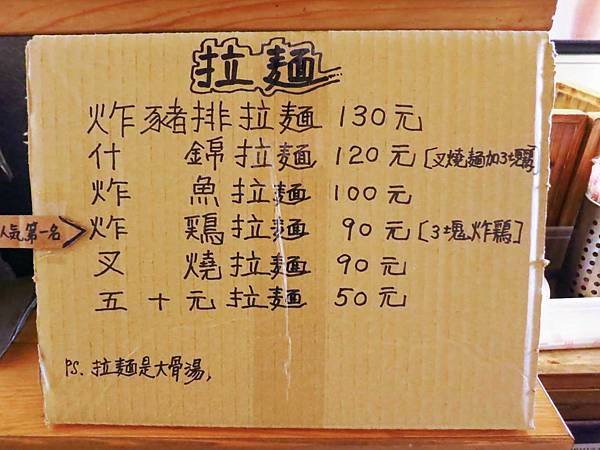 拉麵
炸豬排拉麵 130元
什錦拉麵 120元 [叉燒麵加3塊鷄]
炸魚拉麵 100元
人気第一名 炸鷄拉麵 90元 [3塊炸鷄]
叉燒拉麵 90元
五十元拉麵 50元
PS、拉麵是大骨湯,